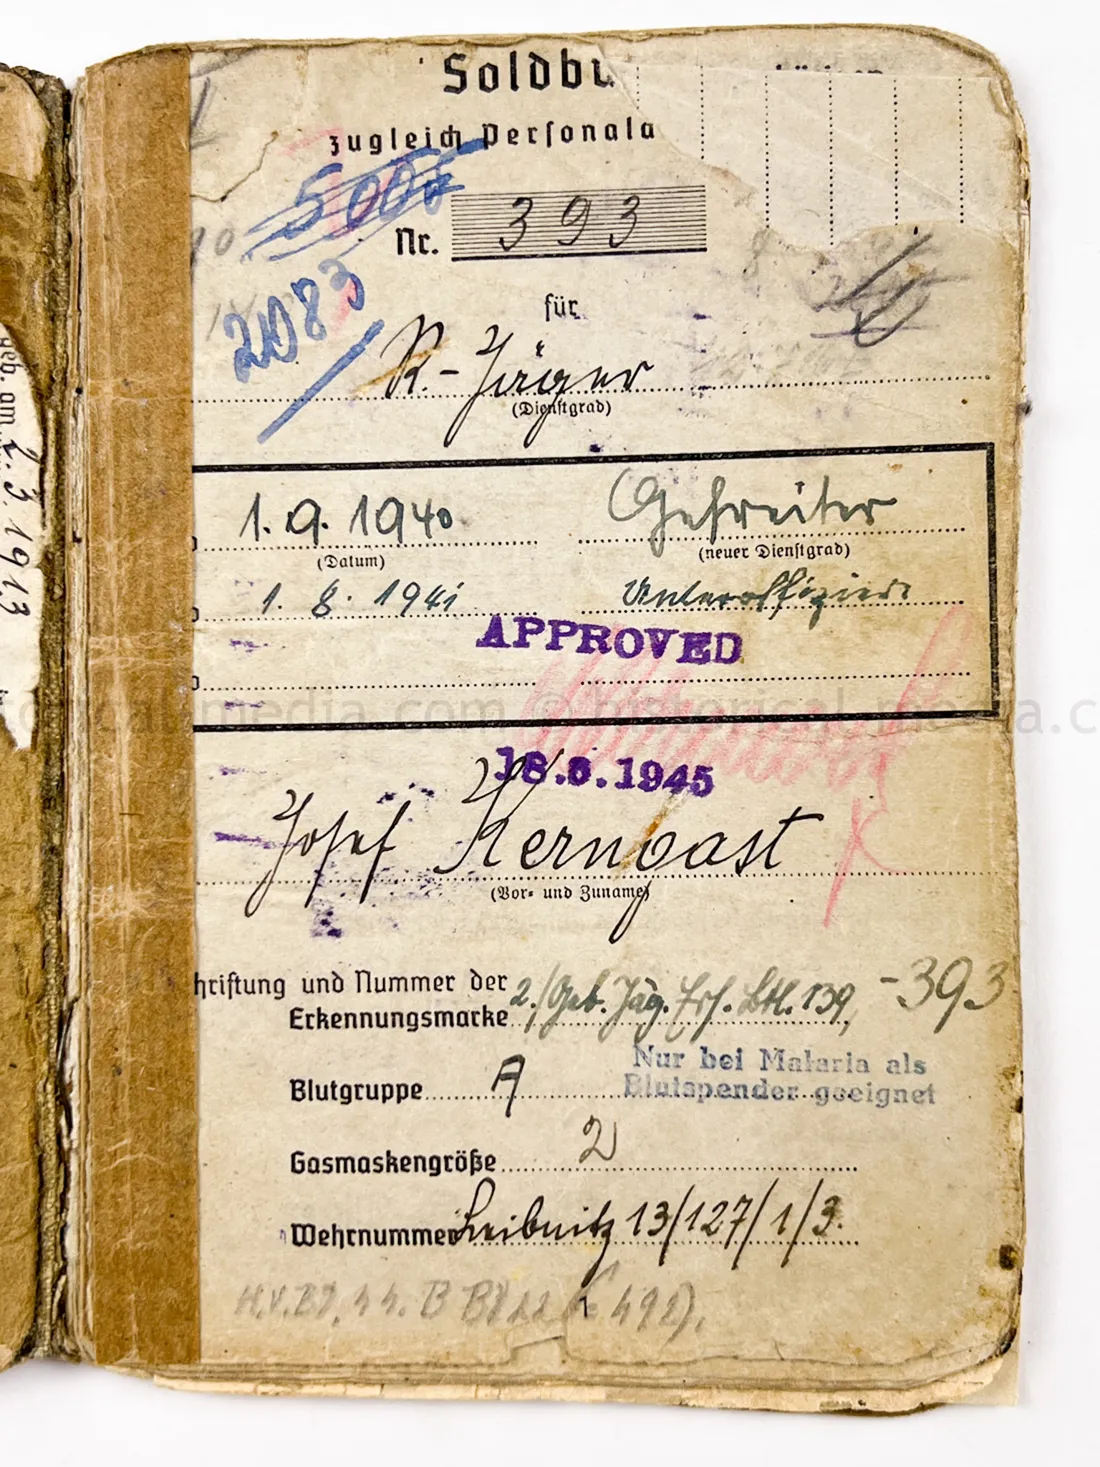 Soldbu
zugleich Personala
5000
Nr. 393
2083
für
K.-Jäger
(Dienstgrad)
1.9.1940 Gefreiter
(Datum) (neuer Dienstgrad)
1.8.1941 Unteroffizier
APPROVED
18.6.1945
Josef Kernbast
(Vor- und Zuname)
hriftung und Nummer der
Erkennungsmarke 2./Geb. Jäg. Ers. Btl. 139, -393
Nur bei Malaria als
Blutgruppe A Blutspender geeignet
Gasmaskengröße 2
Wehrnummer Leibnitz 13/127/1/3.
geb. am 2.3.1913
historical-media.com © historical-media.c